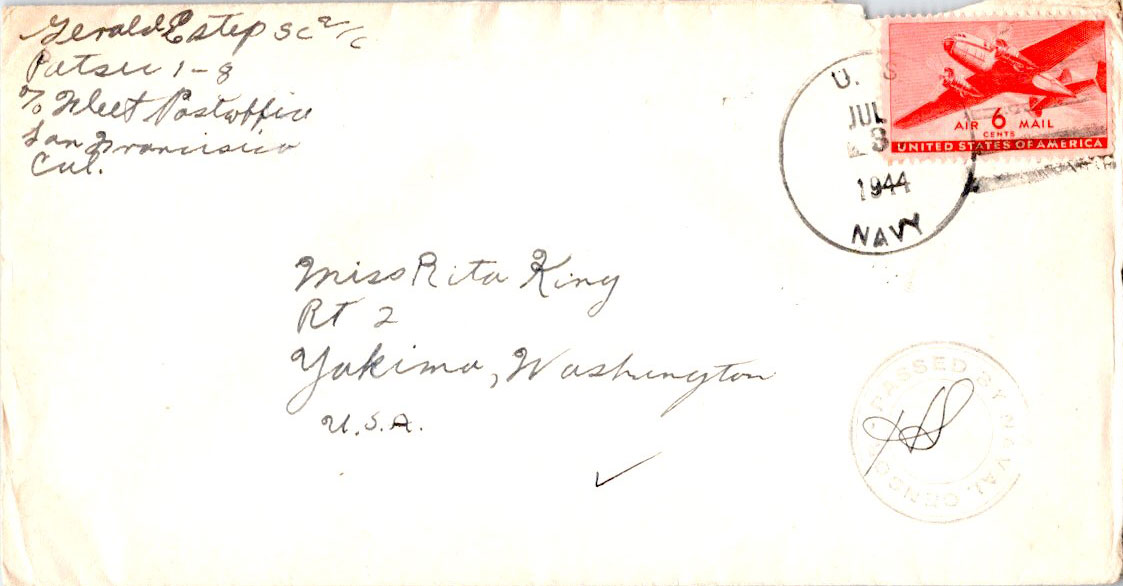 Gerald Estep SC 2/c
Patsu 1-8
c/o Fleet Postoffice
San Francisico
Cal.
U. S.
JUL
3
1944
NAVY
AIR 6 MAIL
CENTS
UNITED STATES OF AMERICA
Miss Rita King
RT 2
Yakima, Washington
U.S.A.
PASSED BY NAVAL CENSOR